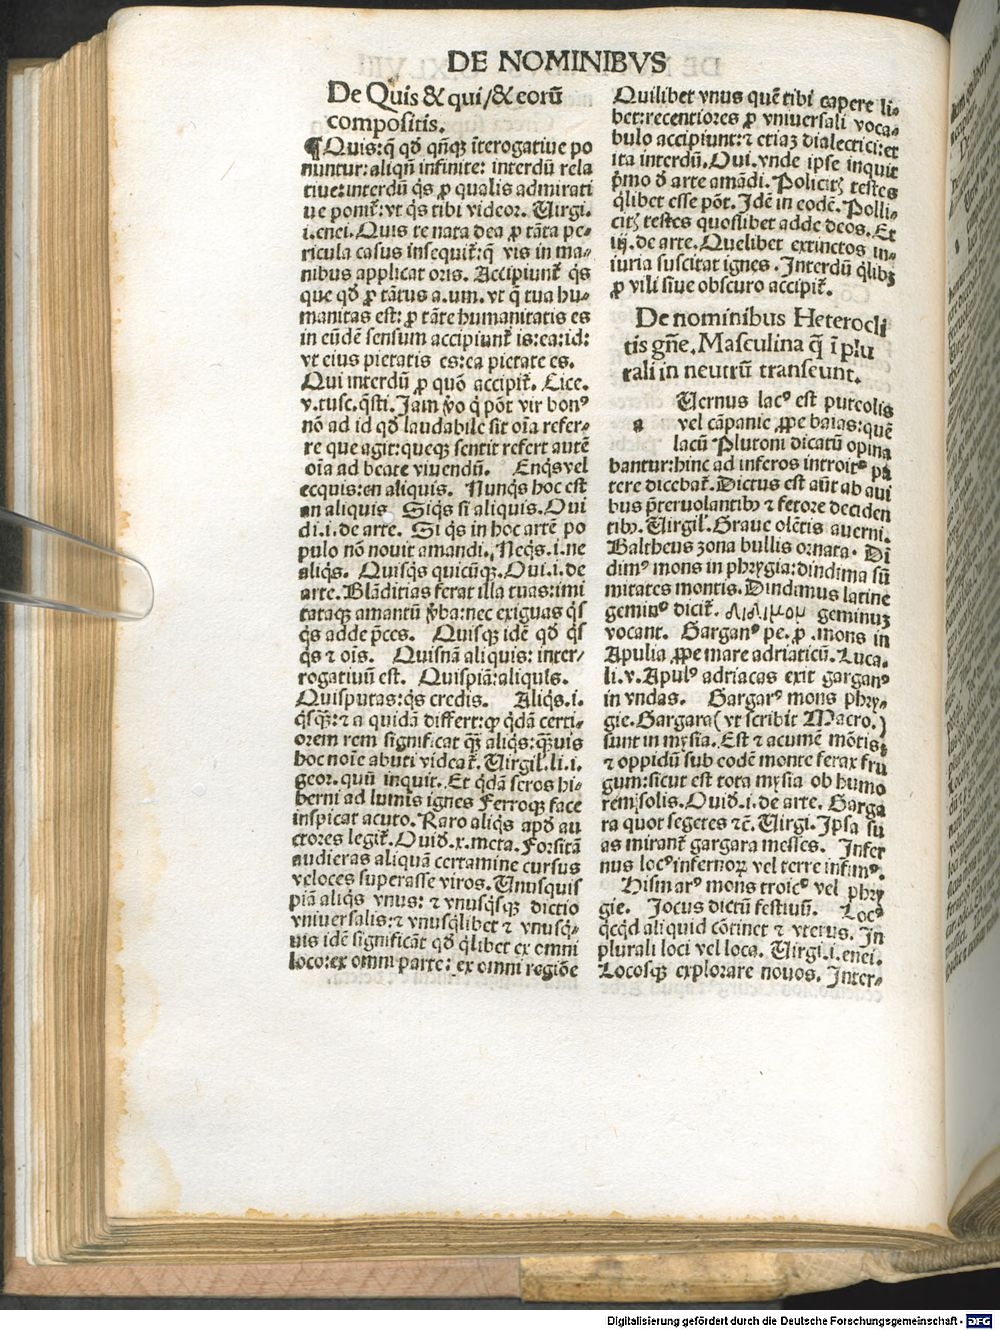 DE NOMINIBVS
De Quis & qui/& eorũ
compositis.
¶Quis:q̃ qđ qñqꝫ ĩterogatiue po
nuntur:aliqñ infinite: interdũ rela
tiue:interdũ q̃s ꝓ qualis admirati
ue ponit̃:vt q̃s tibi videor. Uirgi.
i.enei.Quis te nata dea ꝓ tãta pe-
ricula casus insequit̃:q̃ vis in ma-
nibus applicat oris. Accipiunt̃ q̃s
que qđ ꝓ tãtus a.um.vt q̃ tua hu-
manitas est: ꝓ tãte humanitatis es
in eũdẽ sensum accipiunt̃ is:ea:id:
vt eius pietatis es:ea pietate es.
Qui interdũ ꝓ quõ accipit̃. Lice.
v.tusc.q̃sti.Jam ṽo q̃ põt vir bonꝰ
nõ ad id qđ laudabile sit oĩa refer-
re que agit:queqꝫ sentit refert autẽ
oĩa ad beate viuendũ. Enq̃s vel
ecquis:en aliquis. Nunq̃s hoc est
an aliquis Siq̃s si aliquis.Oui
di.i.de arte. Si q̃s in hoc artẽ po
pulo nõ nouit amandi. Neq̃s.i.ne
aliq̃s. Quisq̃s quicũqꝫ.Oui.i.de
arte.Blãditias ferat illa tuas:imi
tataqꝫ amantũ ṽba:nec exiguas q̃s
q̃s adde p̃ces. Quisqꝫ idẽ qđ q̃s
q̃s ⁊ oĩs. Quisnã aliquis: inter-
rogatiuũ est. Quispiã:aliquis.
Quisputas:q̃s credis. Aliq̃s.i.
q̃sq̃ꝫ:⁊ a quidã differt:ꝙ q̃dã certi-
orem rem significat q̃ꝫ aliq̃s:q̃ꝫuis
hoc noĩe abuti videat̃.Uirgil.li.i.
geor.quũ inquit. Et q̃dã seros hi-
berni ad lumis ignes Ferroqꝫ face
inspicat acuto.Raro aliq̃s apđ au
ctores legit̃.Ouiđ.x.meta.Forsitã
audieras aliquã certamine cursus
veloces superasse viros.Unusquis
piã aliq̃s vnus: ⁊ vnusq̃sqꝫ dictio
vniuersalis:⁊ vnusq̃libet ⁊ vnusq̃-
uis idẽ significãt qđ q̃libet ex omni
loco:ex omni parte: ex omni regiõe
Quilibet vnus quẽ tibi capere li-
bet:recentiores ꝓ vniuersali voca-
bulo accipiunt:⁊ etiaꝫ dialectici:et
ita interdũ.Oui.vnde ipse inquit
p̃mo đ arte amãdi.Policitꝫ testes
q̃libet esse põt.Jdẽ in eodẽ.Polli-
citꝫ testes quoslibet adde deos.Et
iij.de arte.Quelibet extinctos in-
iuria suscitat ignes.Interdũ q̃libꝫ
ꝓ vili siue obscuro accipit̃.
De nominibus Heterocli
tis gñe.Masculina q̃ ĩ plu
rali in neutrũ transeunt.
Uernus lacꝰ est puteolis
a vel cãpanie ꝓpe baias:quẽ
lacũ Plutoni dicatũ opina
bantur:hinc ad inferos introitꝰ pa
tere dicebat̃.Dictus est aũt ab aui
bus p̃teruolantibꝰ ⁊ fetore deciden
tibꝰ.Uirgil.Graue olẽtis auerni.
Baltheus zona bullis ornata. Dĩ
dimꝰ mons in phrygia:dindima sũ
mitates montis.Dindimus latine
geminꝰ dicit̃. geminuꝫ
vocant. Garganꝰ pe.ꝓ.mons in
Apulia ꝓpe mare adriaticũ.Luca.
li.v.Apulꝰ adriacas exit garganꝰ
in vndas. Gargarꝰ mons phry-
gie.Gargara(vt scribit Macro.)
sunt in mysia.Est ⁊ acumẽ mõtis:
⁊ oppidũ sub eodẽ monte ferax fru
gum:sicut est tota mysia ob humo
rem solis.Ouiđ.i.de arte. Garga
ra quot segetes ⁊c̃.Uirgi.Ipsa su
as mirant̃ gargara messes. Infer
nus locꝰ infernoꝝ vel terre infimꝰ.
Hismarꝰ mons troicꝰ vel phry
gie. Jocus dictũ festiuũ. Locꝰ
q̃cq̃d aliquid cõtinet ⁊ vterus. In
plurali loci vel loca. Uirgi.i.enei.
Locosqꝫ explorare nouos. Inter-
Digitalisierung gefördert durch die Deutsche Forschungsgemeinschaft - DFG